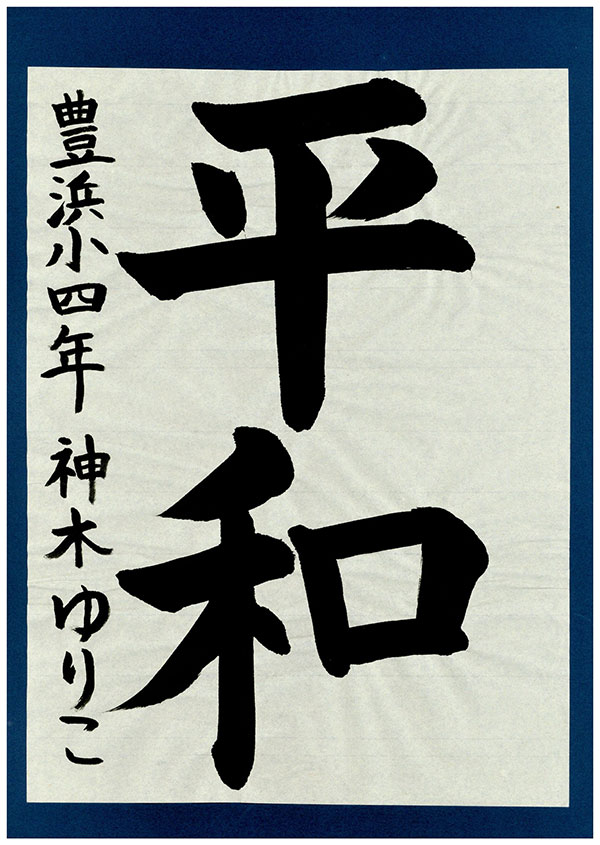 平和
豊浜小四年 神木ゆりこ